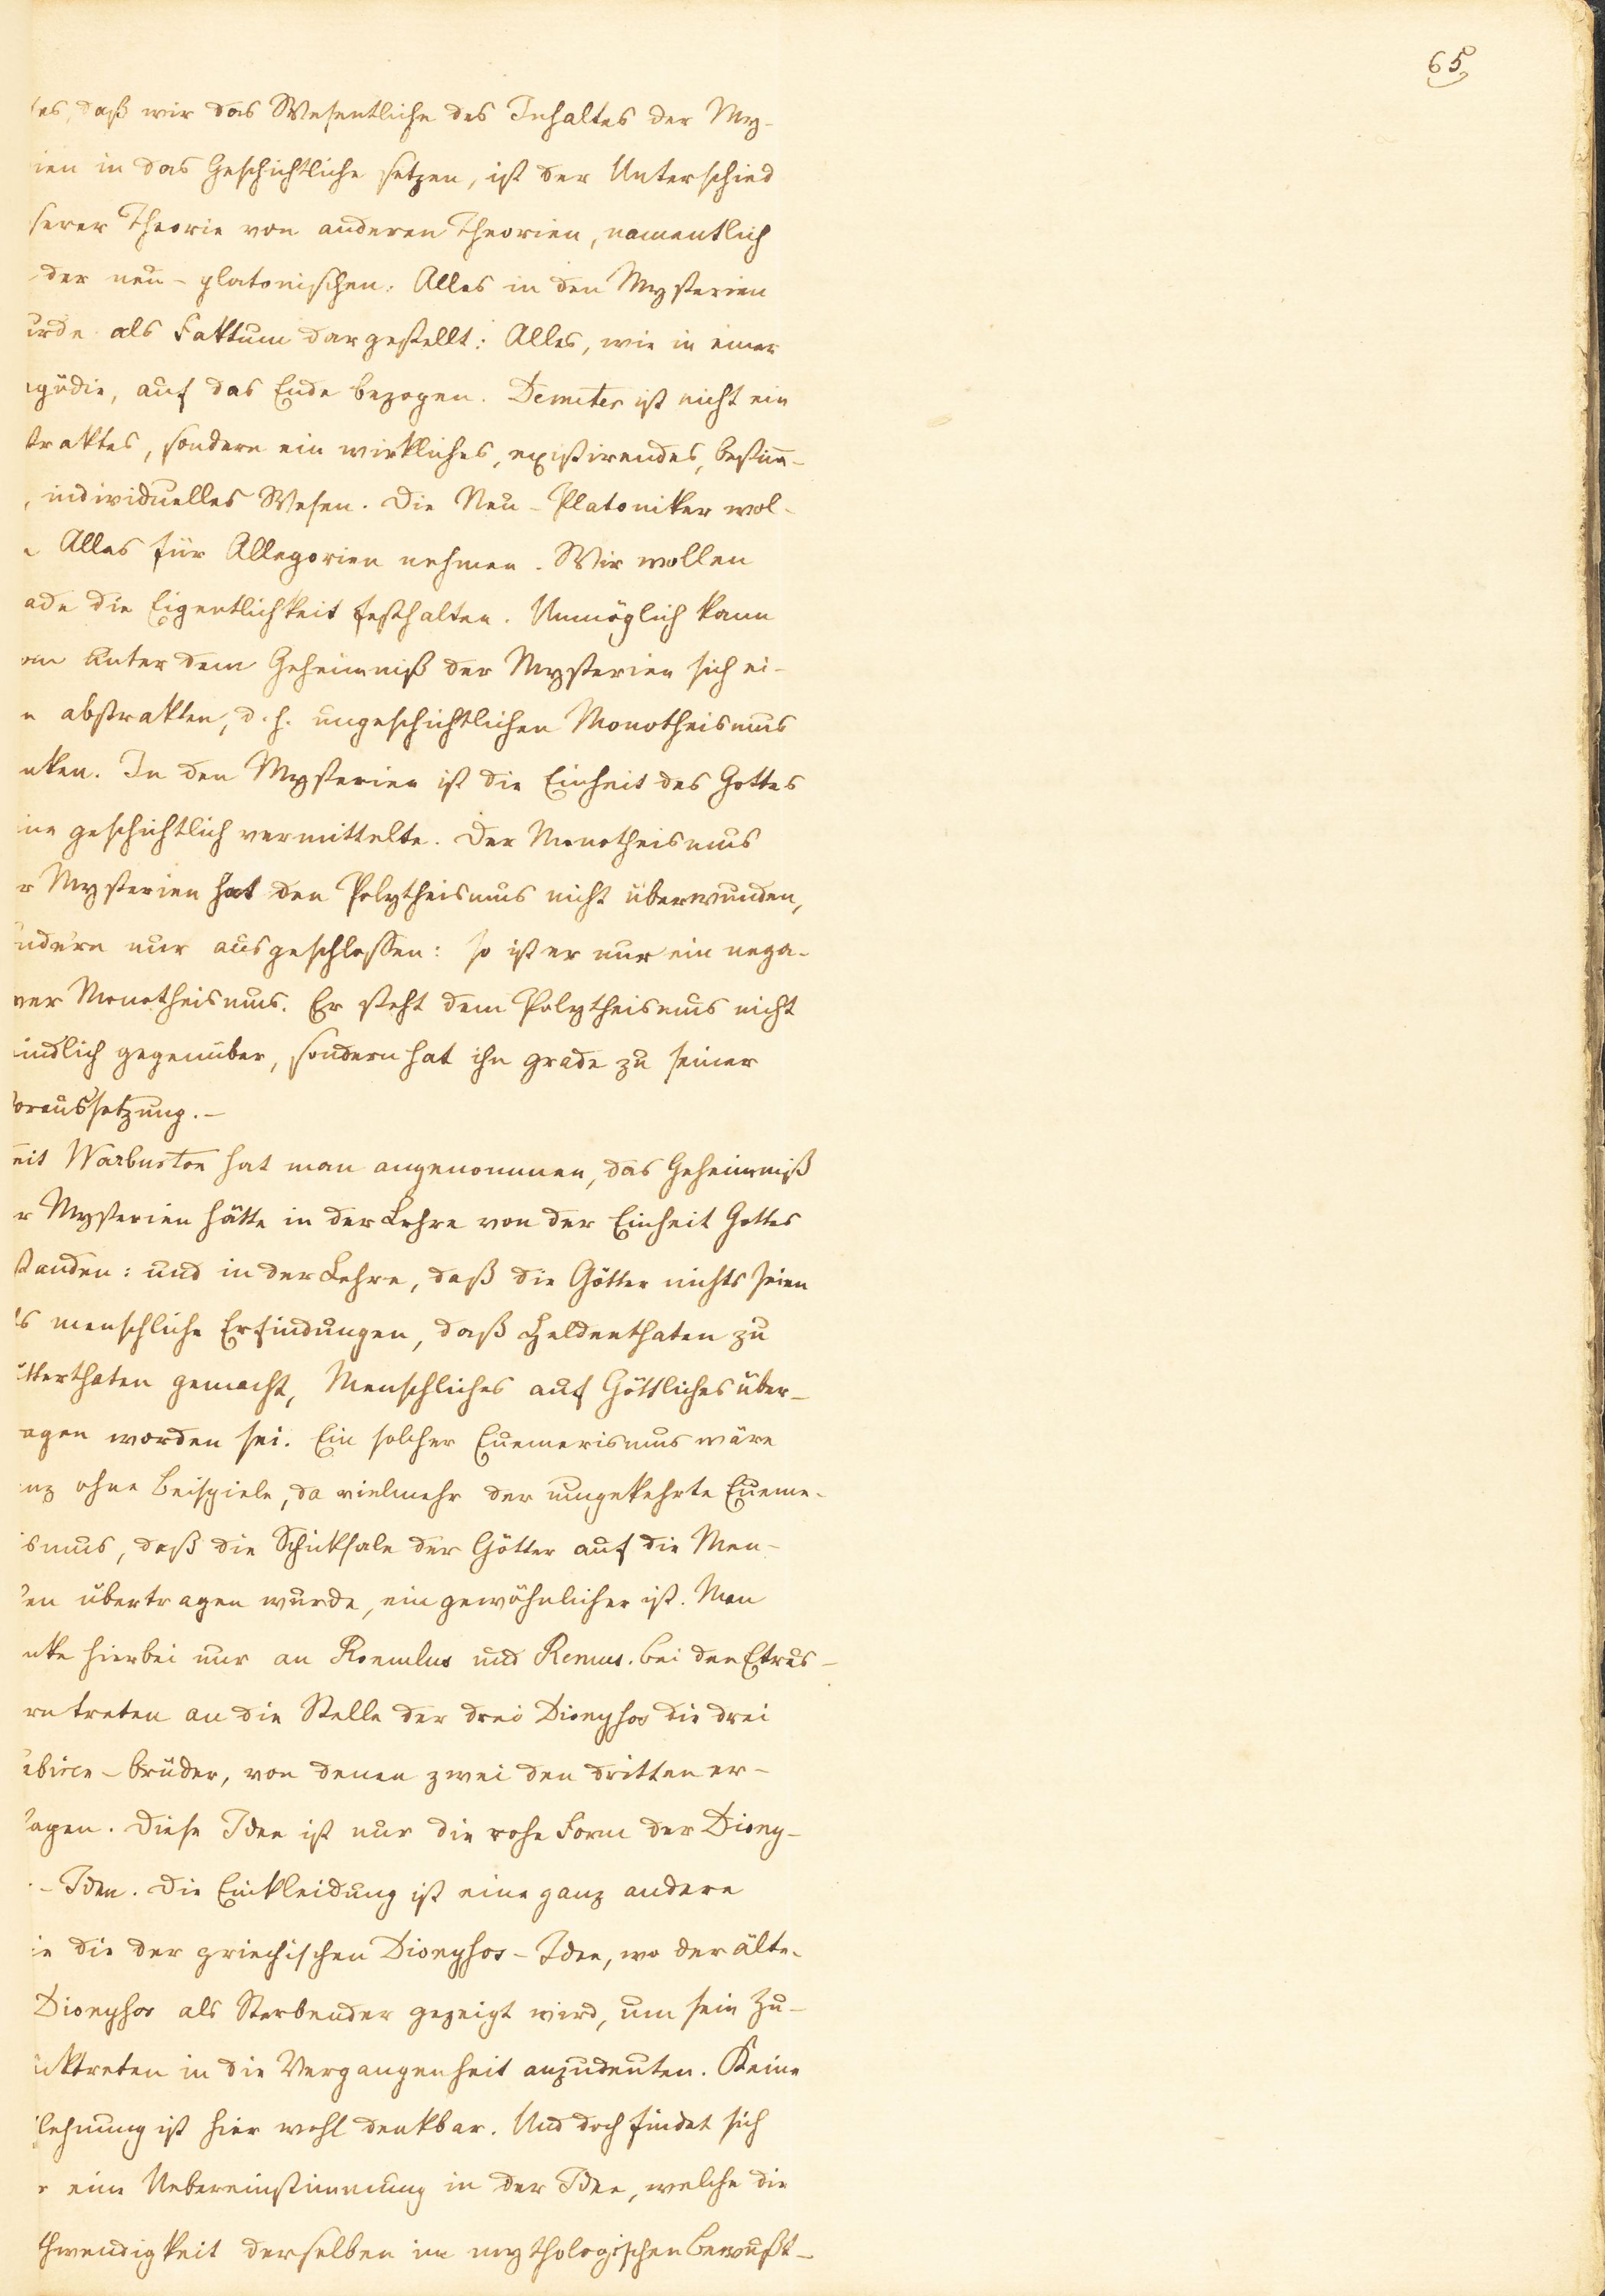 65.
es, daß wir das Wesentliche des Inhaltes der My-
ien in das Geschichtliche setzen, ist der Unterschied
serer Theorie von anderen Theorien, namentlich
der neu-platonischen. Alles in den Mysterien
urde als Faktum dargestellt: Alles, wie in einer
agödie, auf das Ende bezogen. Demeter ist nicht ein
traktes, sondern ein wirkliches, existirendes, bestim̄-
, individuelles Wesen. Die Neu-Platoniker wol-
Alles für Allegorien nehmen. Wir wollen
ade die Eigentlichkeit festhalten. Unmöglich kann
unter dem Geheimniß der Mysterien sich ei-
n abstrakten, d. h. ungeschichtlichen Monotheismus
nken. In den Mysterien ist die Einheit des Gottes
ine geschichtlich vermittelte. Der Monotheismus
r Mysterien hat den Polytheismus nicht überwunden,
ndern nur ausgeschlossen: so ist er nur ein nega-
ver Monotheismus. Er steht dem Polytheismus nicht
indlich gegenüber, sondern hat ihn grade zu seiner
oraussetzung. –
eit Warburton hat man angenommen, das Geheimniß
r Mysterien hätte in der Lehre von der Einheit Gottes
standen: und in der Lehre, daß die Götter nichts seien
ls menschliche Erfindungen, daß Heldenthaten zu
ötterthaten gemacht, Menschliches auf Göttliches über-
agen worden sei. Ein solcher Euemerismus wäre
nz ohne Beispiele, da vielmehr der umgekehrte Eueme-
ismus, daß die Schicksale der Götter auf die Men-
en übertragen wurde, ein gewöhnlicher ist. Man
nke hierbei nur an Romulus und Remus. Bei den Etrus-
rn treten an die Stelle der drei Dionysos die drei
abiren-Brüder, von denen zwei den dritten er-
lagen. Diese Idee ist nur die rohe Form der Diony-
-Idee. Die Einkleidung ist eine ganz andere
ie die der griechischen Dionysos-Idee, wo der älte-
Dionysos als Sterbender gezeigt wird, um sein Zu-
ücktreten in die Vergangenheit anzudeuten. Keine
lehnung ist hier wohl denkbar. Und doch findet sich
r eine Uebereinstimmung in der Idee, welche die
thwendigkeit derselben im mythologischen Bewußt-